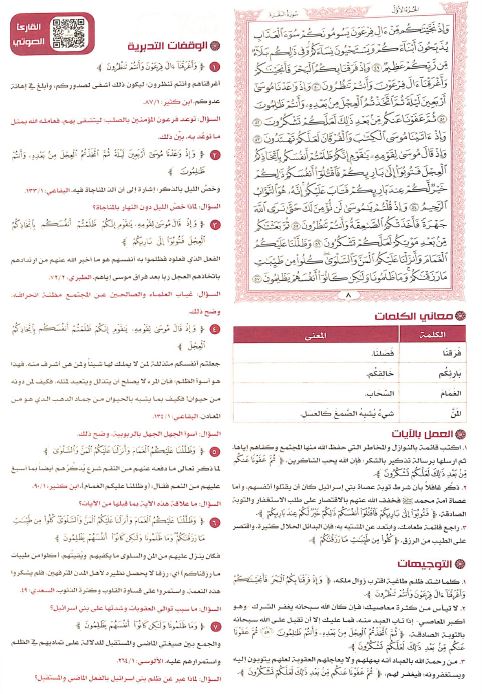 الجزء الأول
سورة البقرة
وَإِذْ نَجَّيْنَٰكُم مِّنْ ءَالِ فِرْعَوْنَ يَسُومُونَكُمْ سُوٓءَ ٱلْعَذَابِ
يُذَبِّحُونَ أَبْنَآءَكُمْ وَيَسْتَحْيُونَ نِسَآءَكُمْ وَفِى ذَٰلِكُم بَلَآءٌ
مِّن رَّبِّكُمْ عَظِيمٌ ٤٩ وَإِذْ فَرَقْنَا بِكُمُ ٱلْبَحْرَ فَأَنجَيْنَٰكُمْ
وَأَغْرَقْنَآ ءَالَ فِرْعَوْنَ وَأَنتُمْ تَنظُرُونَ ٥٠ وَإِذْ وَٰعَدْنَا مُوسَىٰٓ
أَرْبَعِينَ لَيْلَةً ثُمَّ ٱتَّخَذْتُمُ ٱلْعِجْلَ مِنۢ بَعْدِهِۦ وَأَنتُمْ ظَٰلِمُونَ ٥١
ثُمَّ عَفَوْنَا عَنكُم مِّنۢ بَعْدِ ذَٰلِكَ لَعَلَّكُمْ تَشْكُرُونَ ٥٢
وَإِذْ ءَاتَيْنَا مُوسَى ٱلْكِتَٰبَ وَٱلْفُرْقَانَ لَعَلَّكُمْ تَهْتَدُونَ ٥٣
وَإِذْ قَالَ مُوسَىٰ لِقَوْمِهِۦ يَٰقَوْمِ إِنَّكُمْ ظَلَمْتُمْ أَنفُسَكُم بِٱتِّخَاذِكُمُ
ٱلْعِجْلَ فَتُوبُوٓا۟ إِلَىٰ بَارِئِكُمْ فَٱقْتُلُوٓا۟ أَنفُسَكُمْ ذَٰلِكُمْ
خَيْرٌ لَّكُمْ عِندَ بَارِئِكُمْ فَتَابَ عَلَيْكُمْ إِنَّهُۥ هُوَ ٱلتَّوَّابُ
ٱلرَّحِيمُ ٥٤ وَإِذْ قُلْتُمْ يَٰمُوسَىٰ لَن نُّؤْمِنَ لَكَ حَتَّىٰ نَرَى ٱللَّهَ
جَهْرَةً فَأَخَذَتْكُمُ ٱلصَّٰعِقَةُ وَأَنتُمْ تَنظُرُونَ ٥٥ ثُمَّ بَعَثْنَٰكُم
مِّنۢ بَعْدِ مَوْتِكُمْ لَعَلَّكُمْ تَشْكُرُونَ ٥٦ وَظَلَّلْنَا عَلَيْكُمُ
ٱلْغَمَامَ وَأَنزَلْنَا عَلَيْكُمُ ٱلْمَنَّ وَٱلسَّلْوَىٰ كُلُوا۟ مِن طَيِّبَٰتِ
مَا رَزَقْنَٰكُمْ وَمَا ظَلَمُونَا وَلَٰكِن كَانُوٓا۟ أَنفُسَهُمْ يَظْلِمُونَ ٥٧
٨
معاني الكلمات
الكلمة المعنى
فَرَقْنَا فصلنا.
بارئكم خالقكم.
الغمام السَّحاب.
المنّ شيءٌ يُشبِهُ الصّمغَ كالعسل.
العمل بالآيات
١. اكتب قائمة بالنوازل والمخاطر التي حفظ الله منها المجتمع وكفاهم إياها،
ثم ارسلها برسالة تذكير بالشكر؛ فإن الله يحب الشاكرين، ﴿ ثُمَّ عَفَوْنَا عَنكُم
مِّنۢ بَعْدِ ذَٰلِكَ لَعَلَّكُمْ تَشْكُرُونَ ﴾
٢. ذكر غافلاً بأن شرط توبة عصاة بني إسرائيل كان أن يقتلوا أنفسهم، وأما
عصاة أمة محمد ﷺ فخفف الله عنهم بالاقتصار على طلب الاستغفار والتوبة
الصادقة، ﴿ فَتُوبُوٓا۟ إِلَىٰ بَارِئِكُمْ فَٱقْتُلُوٓا۟ أَنفُسَكُمْ ذَٰلِكُمْ خَيْرٌ لَّكُمْ عِندَ بَارِئِكُمْ ﴾
٣. راجع قائمة طعامك، وابتعد عن المشتبه به؛ فإن البدائل الحلال كثيرة، واقتصر
على الطيب من الرزق، ﴿ كُلُوا۟ مِن طَيِّبَٰتِ مَا رَزَقْنَٰكُمْ ﴾
التوجيهات
١. كلما اشتد ظلم طاغية اقترب زوال ملكه، ﴿ وَإِذْ فَرَقْنَا بِكُمُ ٱلْبَحْرَ فَأَنجَيْنَٰكُمْ
وَأَغْرَقْنَآ ءَالَ فِرْعَوْنَ وَأَنتُمْ تَنظُرُونَ ﴾
٢. لا تيأس من كثرة معاصيك؛ فإن كان الله سبحانه يغفر الشرك- وهو
أكبر المعاصي- إذا تاب العبد منه، فما عليك إلا أن تقبل على الله سبحانه
بالتوبة الصادقة، ﴿ ثُمَّ ٱتَّخَذْتُمُ ٱلْعِجْلَ مِنۢ بَعْدِهِۦ وَأَنتُمْ ظَٰلِمُونَ ٥١ ثُمَّ عَفَوْنَا
عَنكُم مِّنۢ بَعْدِ ذَٰلِكَ لَعَلَّكُمْ تَشْكُرُونَ ﴾
٣. من رحمة الله بالعباد أنه يمهلهم ولا يعاجلهم العقوبة لعلهم يتوبون إليه
ويستغفرونه؛ فيغفر لهم، ﴿ ثُمَّ عَفَوْنَا عَنكُم مِّنۢ بَعْدِ ذَٰلِكَ لَعَلَّكُمْ تَشْكُرُونَ ﴾
القارئ
الصوتي
الوقفات التدبرية
١ ﴿ وَأَغْرَقْنَآ ءَالَ فِرْعَوْنَ وَأَنتُمْ تَنظُرُونَ ﴾
أغرقناهم وأنتم تنظرون؛ ليكون ذلك أشفى لصدوركم، وأبلغ في إهانة
عدوكم. ابن كثير: ٨٧/١.
السؤال: توعد فرعون المؤمنين بالصلب؛ ليتشفى بهم، فعامله الله بمثل
ما توعد به، بين ذلك.
٢ ﴿ وَإِذْ وَٰعَدْنَا مُوسَىٰٓ أَرْبَعِينَ لَيْلَةً ثُمَّ ٱتَّخَذْتُمُ ٱلْعِجْلَ مِنۢ بَعْدِهِۦ وَأَنتُمْ
ظَٰلِمُونَ ﴾
وخصّ الليل بالذكر؛ إشارة إلى أن ألذ المناجاة فيه. البقاعي: ١٣٣/١.
السؤال: لماذا خصّ الليل دون النهار بالمناجاة؟
٣ ﴿ وَإِذْ قَالَ مُوسَىٰ لِقَوْمِهِۦ يَٰقَوْمِ إِنَّكُمْ ظَلَمْتُمْ أَنفُسَكُم بِٱتِّخَاذِكُمُ
ٱلْعِجْلَ فَتُوبُوٓا۟ إِلَىٰ بَارِئِكُمْ ﴾
الفعل الذي فعلوه فظلموا به أنفسهم هو ما أخبر الله عنهم من ارتدادهم
باتخاذهم العجل ربا بعد فراق موسى إياهم. الطبري: ٧٢/٢.
السؤال: غياب العلماء والصالحين عن المجتمع مظنة انحرافه،
وضح ذلك.
٤ ﴿ وَإِذْ قَالَ مُوسَىٰ لِقَوْمِهِۦ يَٰقَوْمِ إِنَّكُمْ ظَلَمْتُمْ أَنفُسَكُم بِٱتِّخَاذِكُمُ
ٱلْعِجْلَ ﴾
جعلتم أنفسكم متذللة لمن لا يملك لها شيئاً ولمن هي أشرف منه، فهذا
هو أسوأ الظلم؛ فإن المرء لا يصلح أن يتذلل ويتعبد لمثله، فكيف لمن دونه
من حيوان! فكيف بما يشبه بالحيوان من جماد الذهب الذي هو من
المعادن. البقاعي: ١٣٤/١.
السؤال: أسوأ الجهل الجهل بالربوبية، وضح ذلك.
٥ ﴿ وَظَلَّلْنَا عَلَيْكُمُ ٱلْغَمَامَ وَأَنزَلْنَا عَلَيْكُمُ ٱلْمَنَّ وَٱلسَّلْوَىٰ ﴾
لما ذكر تعالى ما دفعه عنهم من النقم شرع يُذكِّرهم أيضا بما أسبغ
عليهم من النعم فقال: ﴿ وَظَلَّلْنَا عَلَيْكُمُ ٱلْغَمَامَ ﴾. ابن كثير: ٩٠/١.
السؤال: ما علاقة هذه الآية بما قبلها من الآيات؟
٦ ﴿ وَظَلَّلْنَا عَلَيْكُمُ ٱلْغَمَامَ وَأَنزَلْنَا عَلَيْكُمُ ٱلْمَنَّ وَٱلسَّلْوَىٰ كُلُوا۟ مِن طَيِّبَٰتِ
مَا رَزَقْنَٰكُمْ وَمَا ظَلَمُونَا وَلَٰكِن كَانُوٓا۟ أَنفُسَهُمْ يَظْلِمُونَ ﴾
فكان ينزل عليهم من المن والسلوى ما يكفيهم ويقيتهم، (كلوا من طيبات
ما رزقناكم) أي: رزقا لا يحصل نظيره لأهل المدن المترفهين، فلم يشكروا
هذه النعمة، واستمروا على قساوة القلوب وكثرة الذنوب. السعدي: ٤٩.
السؤال: ما سبب توالي العقوبات وشدتها على بني إسرائيل؟
٧ ﴿ وَمَا ظَلَمُونَا وَلَٰكِن كَانُوٓا۟ أَنفُسَهُمْ يَظْلِمُونَ ﴾
والجمع بين صيغتي الماضي والمستقبل للدلالة على تماديهم في الظلم
واستمرارهم عليه. الألوسي: ٢٦٤/١.
السؤال: لماذا عبر عن ظلم بني إسرائيل بالفعل الماضي والمستقبل؟